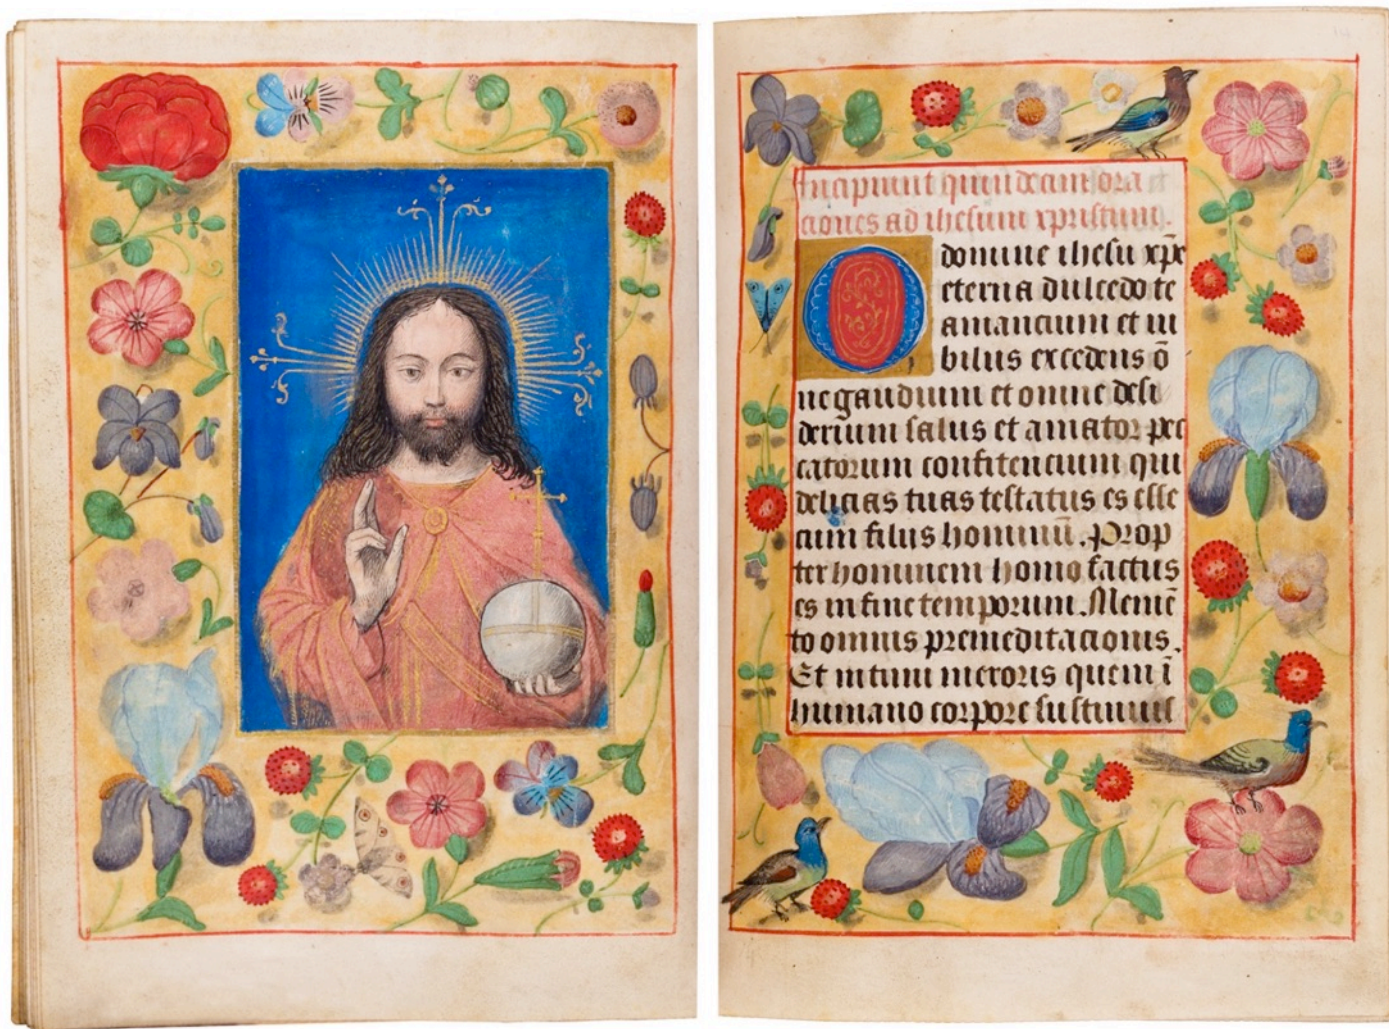 Incipiunt quindecim ora
ciones ad ihesum xpristum.
O domine ihesu xp̄e
eterna dulcedo te
amancium et iu
bilus excedens ō
ne gaudium et omne desi
derium salus et amator pec
catorum confitencium qui
delicias tuas testatus es esse
cum filiis hominū. Prop
ter hominem homo factus
es in fine temporum. Memē
to omnis premeditacionis.
Et intimi meroris quem ī
humano corpore sustinuis